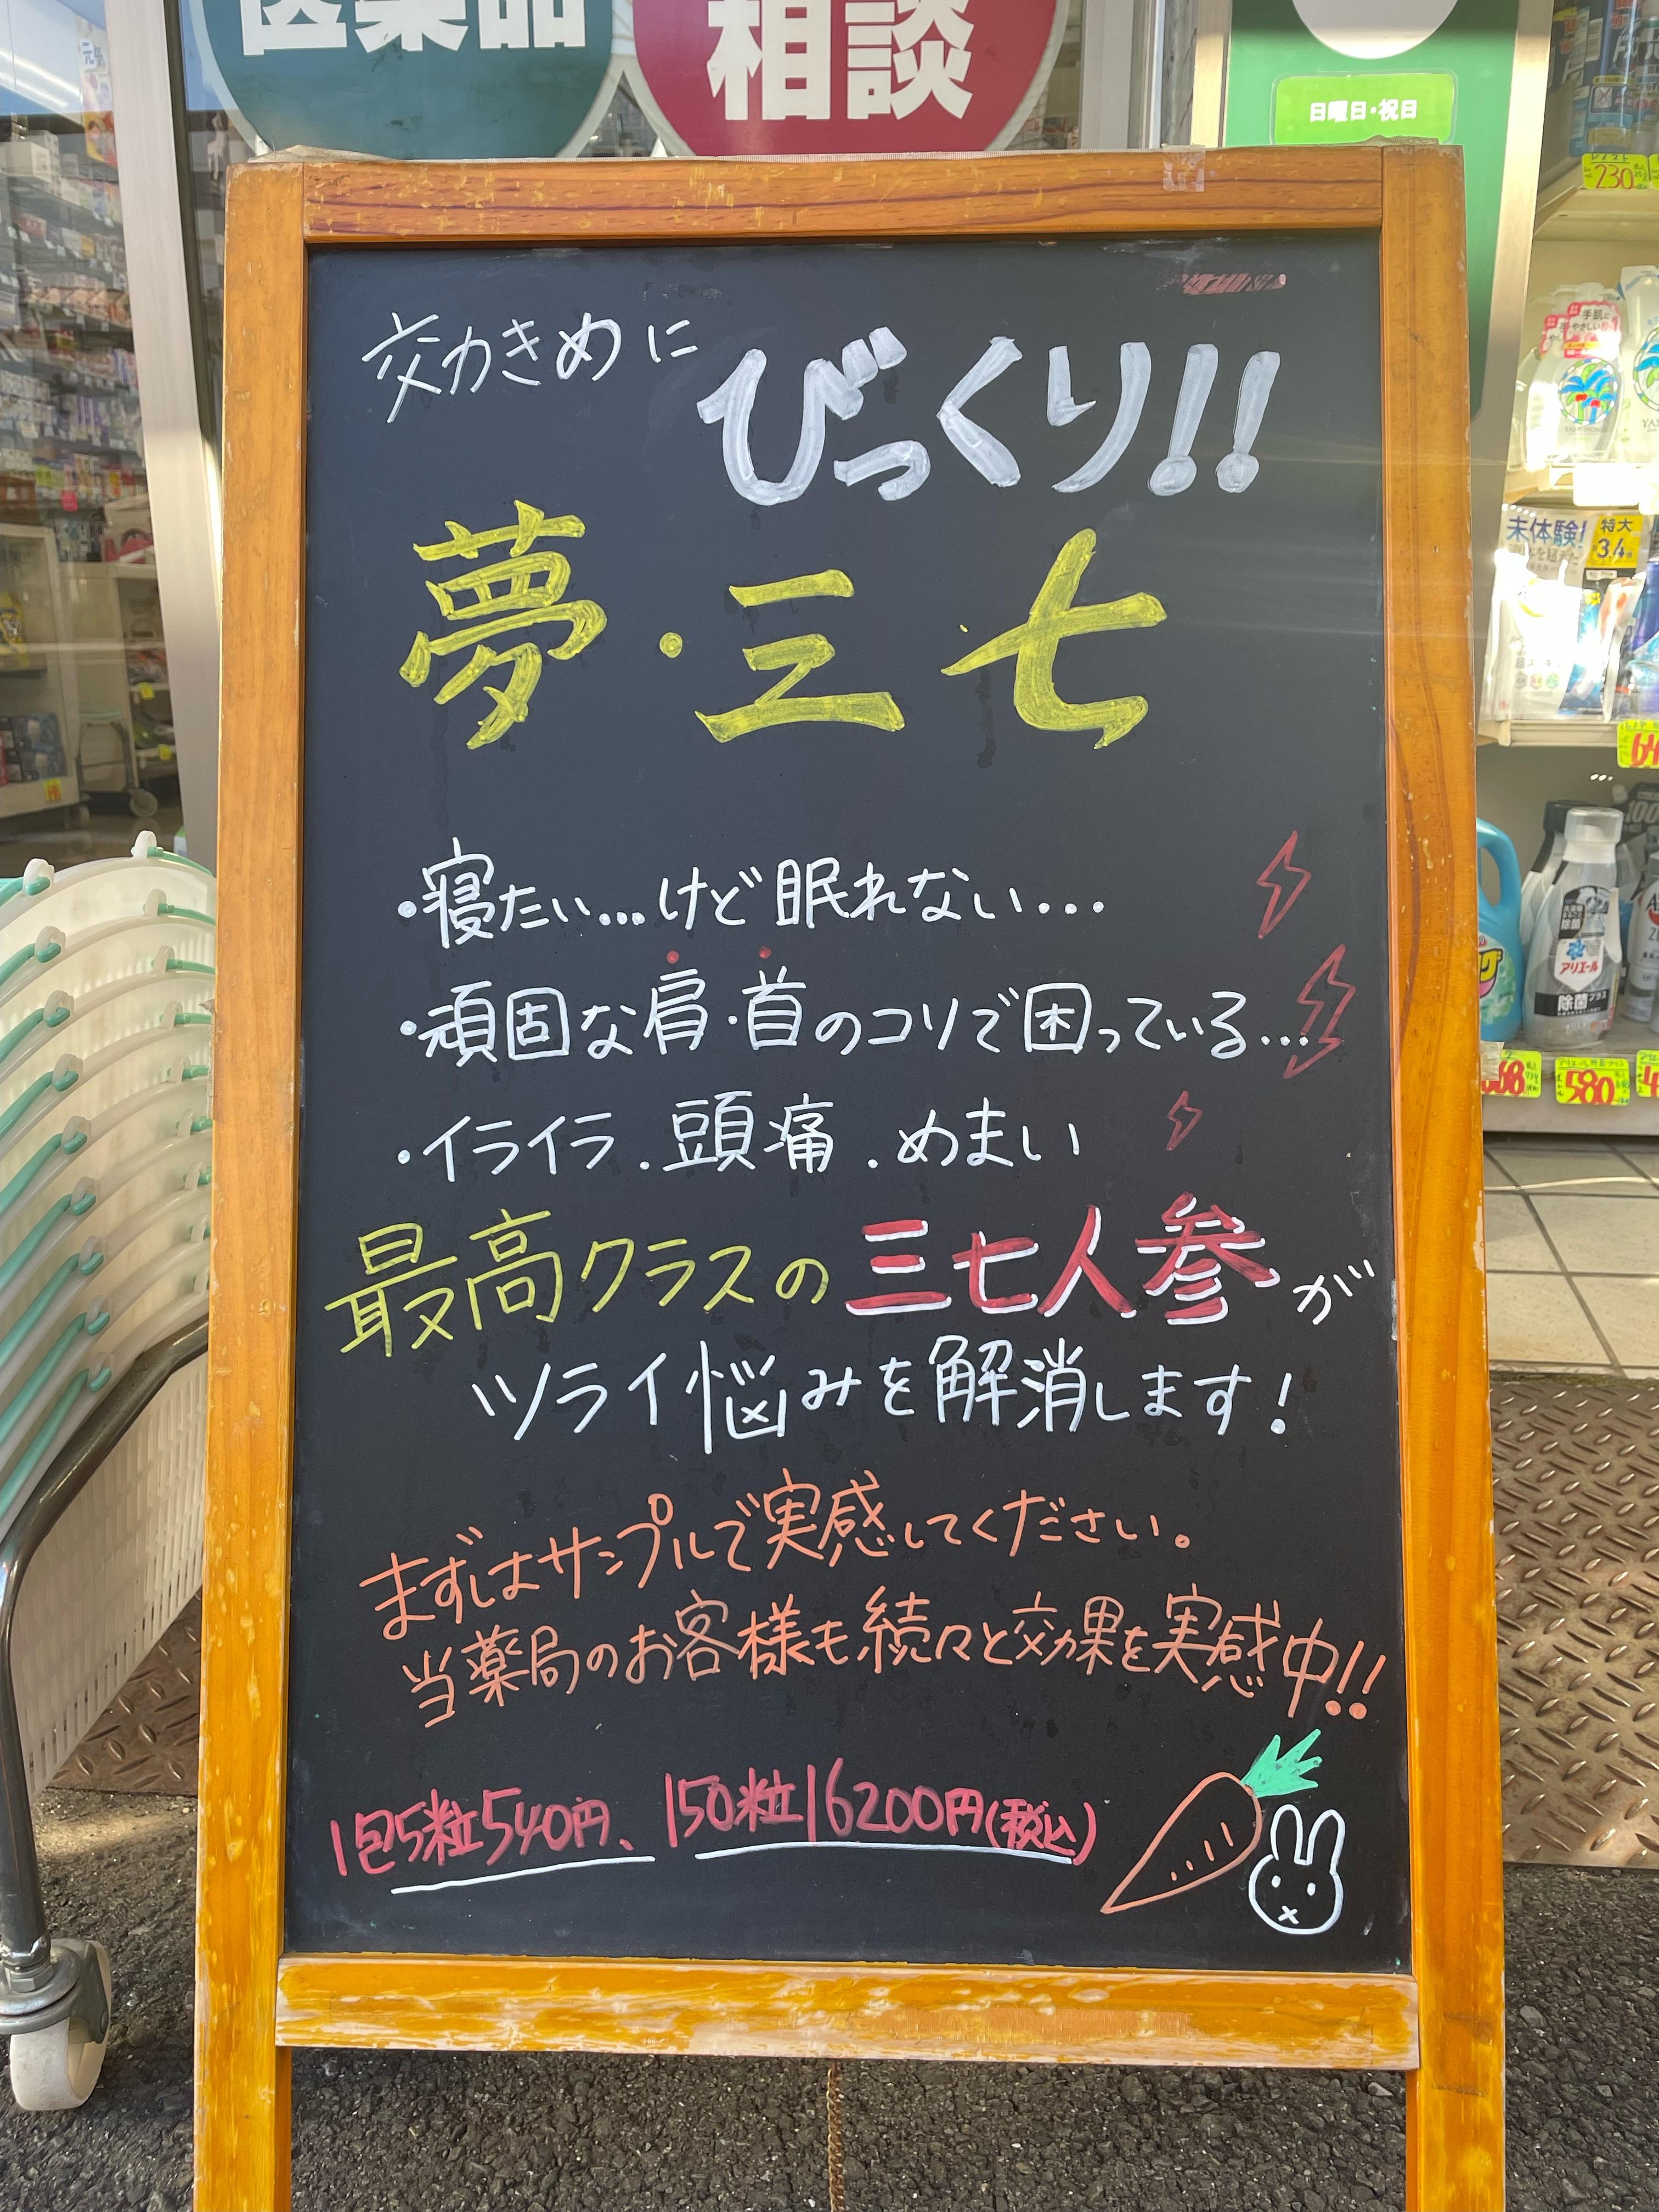 医薬品
相談
日曜日・祝日
効きめに
びっくり!!
夢・三七
・寝たい…けど眠れない…
・頑固な肩・首のコリで困っている…
・イライラ.頭痛.めまい
最高クラスの三七人参が
ツライ悩みを解消します!
まずはサンプルで実感してください。
当薬局のお客様も続々と効果を実感中!!
1包5粒540円、150粒16200円(税込)
230
手肌に
やさしい
未体験!
特大
3.4
除菌
アリエール
除菌プラス
580